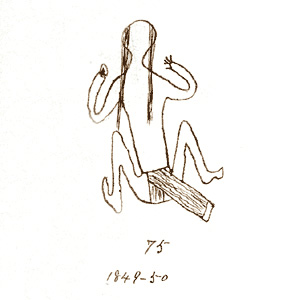 75
1849-50